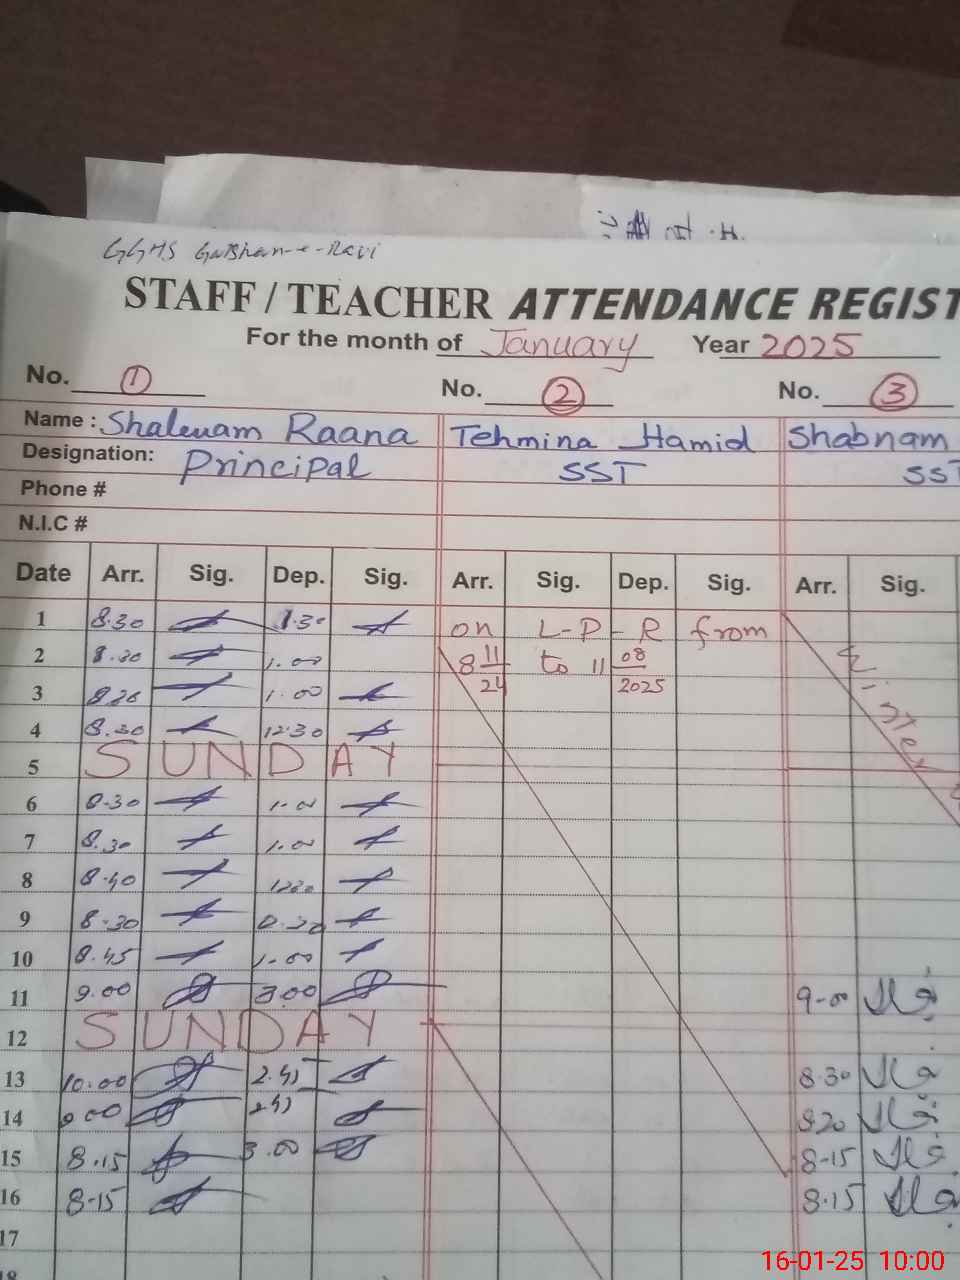 GGHS Gulshan-e-Ravi
STAFF / TEACHER ATTENDANCE REGIST
For the month of January Year 2025
No. 1 No. 2 No. 3
Name : Raana Tehmina Hamid Shabnam
Designation: Principal SST SST
Phone #
N.I.C #
Date Arr. Sig. Dep. Sig. Arr. Sig. Dep. Sig. Arr. Sig.
1 8.30 1.30 on L-P-R from
2 8.30 1.00 8 11/24 to 11 08/2025
3 8.30 1.00
4 8.30 12.30
5 SUNDAY
6 8.30 1.00
7 8.30 1.00
8 8.40 1230
9 8.30
10 8.45 1.00
11 9.00 3.00 9-00
12 SUNDAY
13 10.00 2.45 8.30
14 9.00 2.45 8.20
15 8.15 3.00 8-15
16 8-15 8.15
17
18
16-01-25 10:00